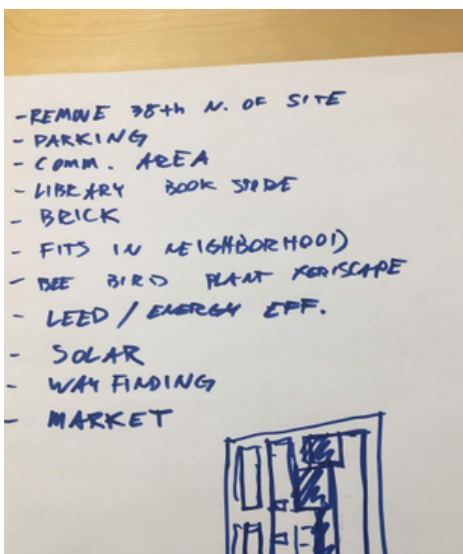 - REMOVE 38th N. OF SITE
- PARKING
- COMM. AREA
- LIBRARY BOOK
- BRICK
- FITS IN NEIGHBORHOOD
- BEE BIRD PLANT XERISCAPE
- LEED / ENERGY EFF.
- SOLAR
- WAY FINDING
- MARKET